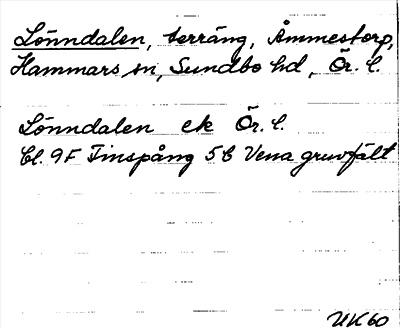 Lönndalen, terräng, Åmmestorp,
Hammars sn, Sundbo hd, Ör. l.
Lönndalen ek Ör. l.
Bl. 9F Finspång 5b Vena gruvfält
UK60